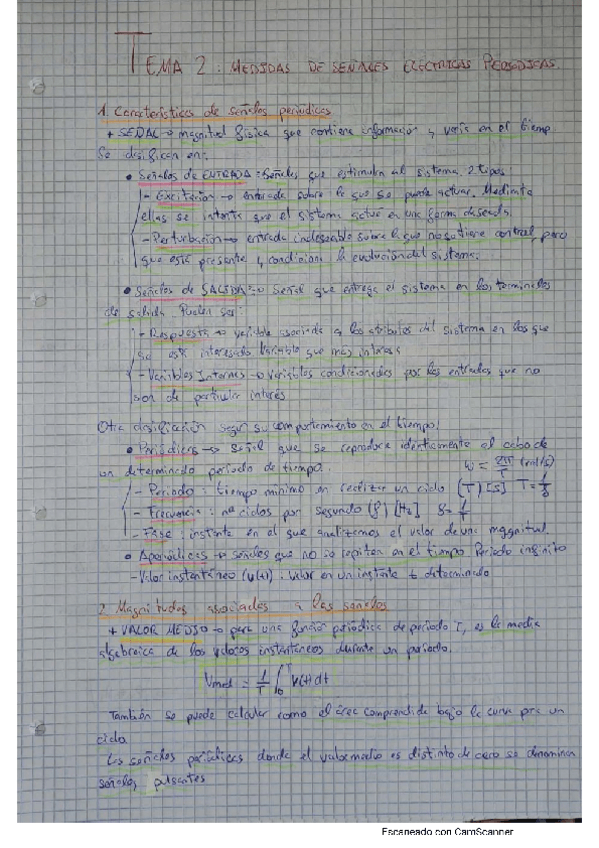 TEMA 2: MEDIDAS DE SEÑALES ELÉCTRICAS PERIÓDICAS
1. Características de señales periódicas
+ SEÑAL → magnitud física que contiene información y varía en el tiemp.
Se clasifican en:
• Señales de ENTRADA = Señales que estimulan al sistema. 2 tipos
- Excitación → entrada sobre la que se puede actuar. Mediante
ellas se intenta que el sistema actúe en una forma deseada.
- Perturbación → entrada indeseable sobre la que no se tiene control, pero
que está presente y condiciona la evolución del sistema.
• Señales de SALIDA → Señal que entrega el sistema en los terminales
de salida. Pueden ser:
- Respuesta → variable asociada a los atributos del sistema en los que
se está interesado. Variable que más interesa
- Variables Internas → variables condicionadas por las entradas que no
son de particular interés
Otra clasificación según su comportamiento en el tiempo:
• Periódicas → señal que se reproduce idénticamente al cabo de
un determinado periodo de tiempo. ω = 2π/T (rad/s)
- Periodo: tiempo mínimo en realizar un ciclo (T) [s] T = 1/f
- Frecuencia: nº ciclos por segundo (f) [Hz] f = 1/T
- FASE: instante en el que analizamos el valor de una magnitud.
• Aperiódicas → señales que no se repiten en el tiempo. Periodo infinito
- Valor instantáneo (v(t)): valor en un instante t determinado
2. Magnitudes asociadas a las señales
+ VALOR MEDIO → para una función periódica de periodo T, es la media
algebraica de los valores instantáneos durante un periodo.
Vmed = 1/T ∫₀ᵀ v(t) dt
También se puede calcular como el área comprendida bajo la curva para un
ciclo
Las señales periódicas donde el valor medio es distinto de cero se denominan
señales pulsantes
Escaneado con CamScanner